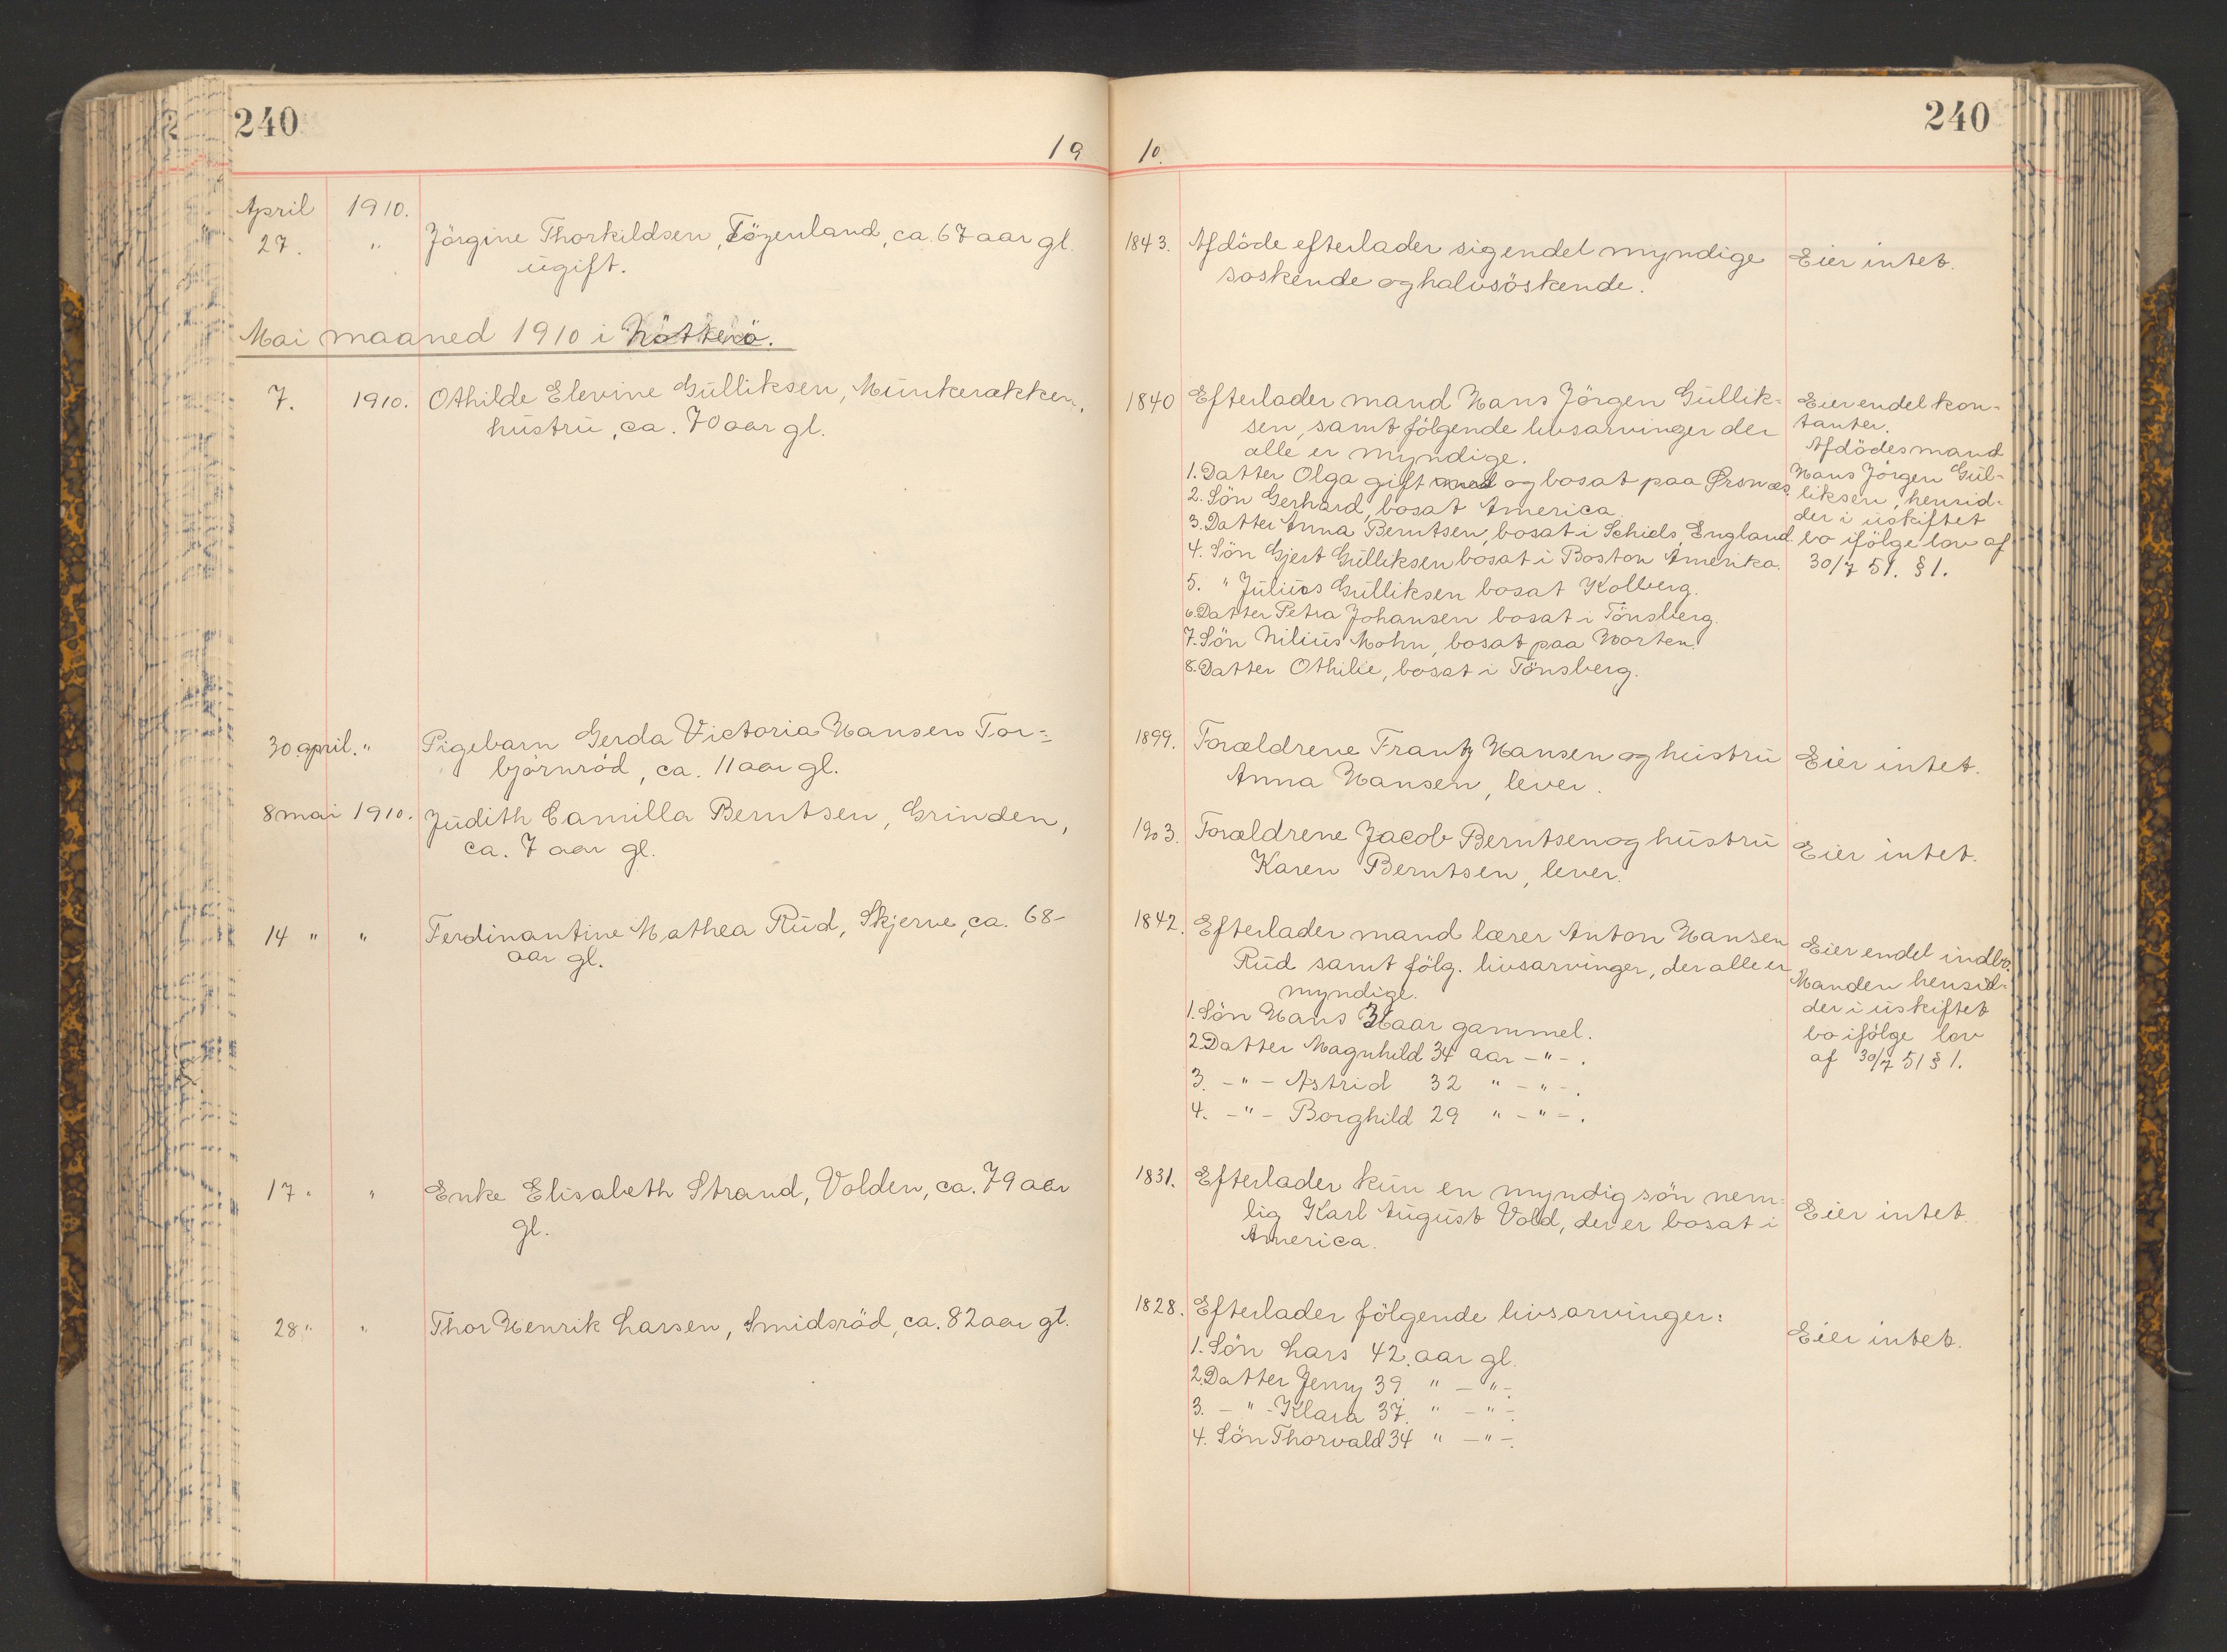 240
240
19 10.
April 1910.
27. " Jörgine Thorkildsen, Tözenland, ca. 67 aar gl.
ugift.
1843. Afdöde efterlader sig endel myndige
soskende og halvsöskende.
Eier intet.
Mai maaned 1910 i Nötterö.
7. 1910. Othilde Elevine Gulliksen, Munkerækken,
hustru, ca. 70 aar gl.
1840 Efterlader mand Hans Jörgen Gullik-
sen, samt fölgende livsarvinger der
alle er myndige.
1. Datter Olga gift og bosat paa Ørsnæs.
2. Sön Gerhard, bosat America.
3. Datter Anna Berntsen, bosat i Schiels, England.
4. Sön Gjert Gulliksen bosat i Boston Amerika.
5. " Julius Gulliksen bosat Kolberg.
6. Datter Petra Johansen bosat i Tönsberg.
7. Sön Nilius Mohn, bosat paa Horten.
8. Datter Othilie, bosat i Tönsberg.
Eier endel kon-
tanter.
Afdödes mand
Hans Jörgen Gul-
liksen, hensid-
der i uskiftet
bo ifölge lov af
30/7 51. § 1.
30. april. " Pigebarn Gerda Victoria Hansen Tor-
björnröd, ca. 11 aar gl.
1899. Forældrene Frantz Hansen og hustru
Anna Hansen, lever.
Eier intet.
8 mai 1910. Judith Camilla Berntsen, Grinden,
ca. 7 aar gl.
1903. Forældrene Jacob Berntsen og hustru
Karen Berntsen, lever.
Eier intet.
14 " " Ferdinantine Mathea Rud, Skjerve, ca. 68-
aar gl.
1842. Efterlader mand lærer Anton Hansen
Rud samt fölg. livsarvinger, der alle er
myndige.
1. Sön Hans aar gammel.
2. Datter Magnhild 34 aar - " - .
3. - " - Astrid 32 " - " - .
4. - " - Borghild 29 " - " - .
Eier endel indbo.
Manden hensid-
der i uskiftet
bo ifölge lov
af 30/7 51 § 1.
17 " " Enke Elisabeth Strand, Volden, ca. 79 aar
gl.
1831. Efterlader kun en myndig sön nem-
lig Karl August Vold, der er bosat i
America.
Eier intet.
28 " " Thor Henrik Larsen, Smidsröd, ca. 82 aar gl.
1828. Efterlader fölgende livsarvinger:
1. Sön Lars 42. aar gl.
2. Datter Jenny 39 " - " -.
3. - " - Klara 37. " - " -.
4. Sön Thorvald 34 " - " -.
Eier intet.